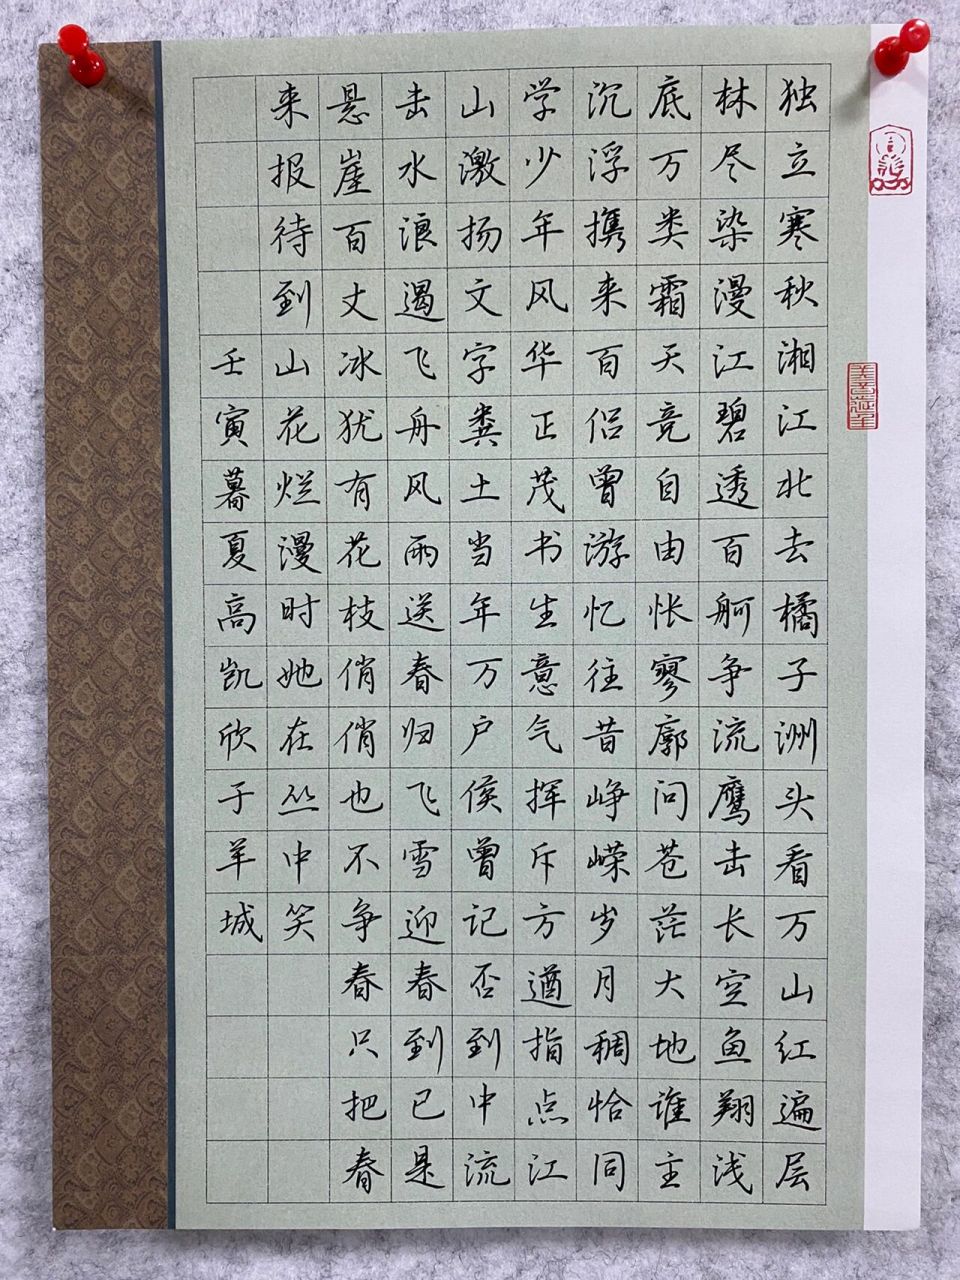 独立寒秋湘江北去橘子洲头看万山红遍层
林尽染漫江碧透百舸争流鹰击长空鱼翔浅
底万类霜天竞自由怅寥廓问苍茫大地谁主
沉浮携来百侣曾游忆往昔峥嵘岁月稠恰同
学少年风华正茂书生意气挥斥方遒指点江
山激扬文字粪土当年万户侯曾记否到中流
击水浪遏飞舟风雨送春归飞雪迎春到已是
悬崖百丈冰犹有花枝俏俏也不争春只把春
来报待到山花烂漫时她在丛中笑
壬寅暮夏高凯欣于羊城